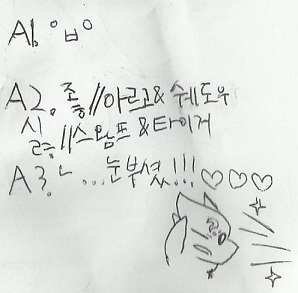 A1. ㅇㅂㅇ
A2. 좋//아르고& 쉐도우
싫//스웜프 &타이거
A3. ...눈부셨!!!♡♡♡
?